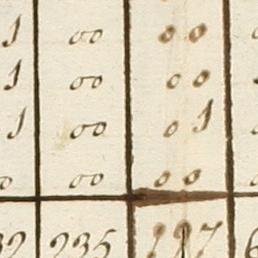 1 00 00
1 00 00
1 00 01
0 00 00
32 235 197 6